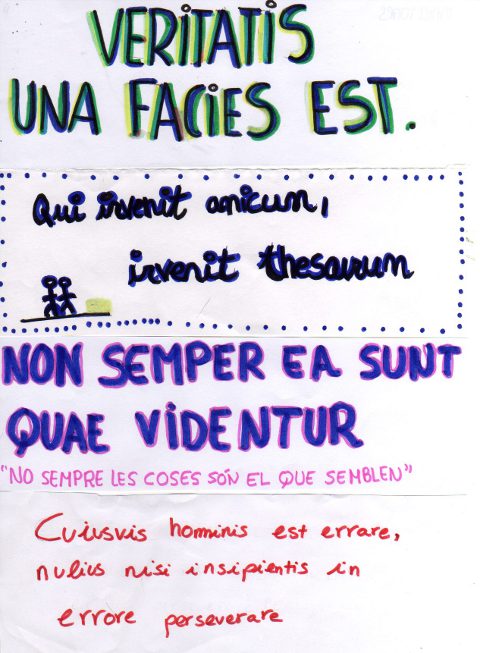 VERITATIS
UNA FACIES EST.
Qui invenit amicum,
invenit thesaurum
NON SEMPER EA SUNT
QUAE VIDENTUR
"NO SEMPRE LES COSES SÓN EL QUE SEMBLEN"
Cuiusvis homminis est errare,
nulius nisi insipientis in
errore perseverare